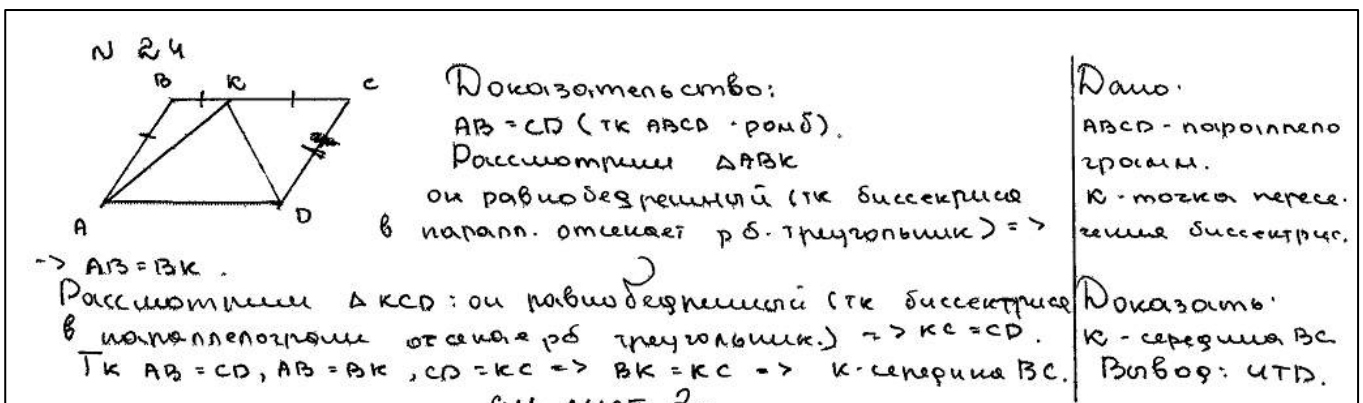 N 24
B K C
A D
Доказательство:
AB = CD (тк ABCD - ромб).
Рассмотрим ΔABK
он равнобедренный (тк биссектриса
в паралл. отсекает рб. треугольник) =>
-> AB = BK .
Рассмотрим Δ KCD : он равнобедренный (тк биссектриса
в параллелограмм отсекае рб треугольник.) => KC = CD.
Тк AB = CD, AB = BK , CD = KC => BK = KC => K-середина BC.
Дано:
ABCD - параллело
грамм.
K - точка пересе.
чения биссектрис.
Доказать:
K - середина BC
Вывод: ЧТД.